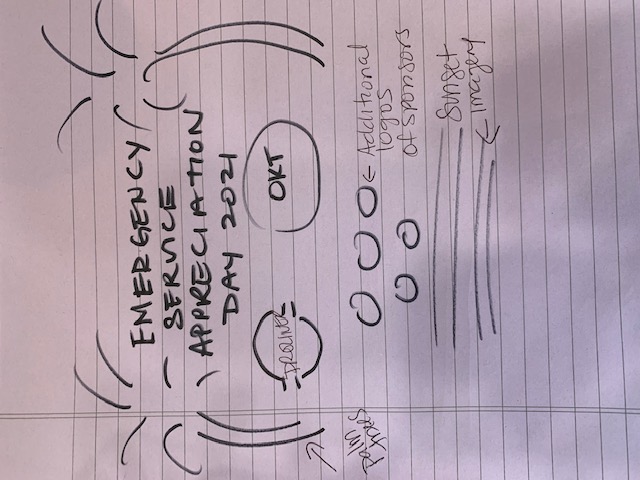 EMERGENCY
SERVICE
APPRECIATION
DAY 2021
OKT
palm
trees
Additional
logos
of sponsors
Sunset
imagery